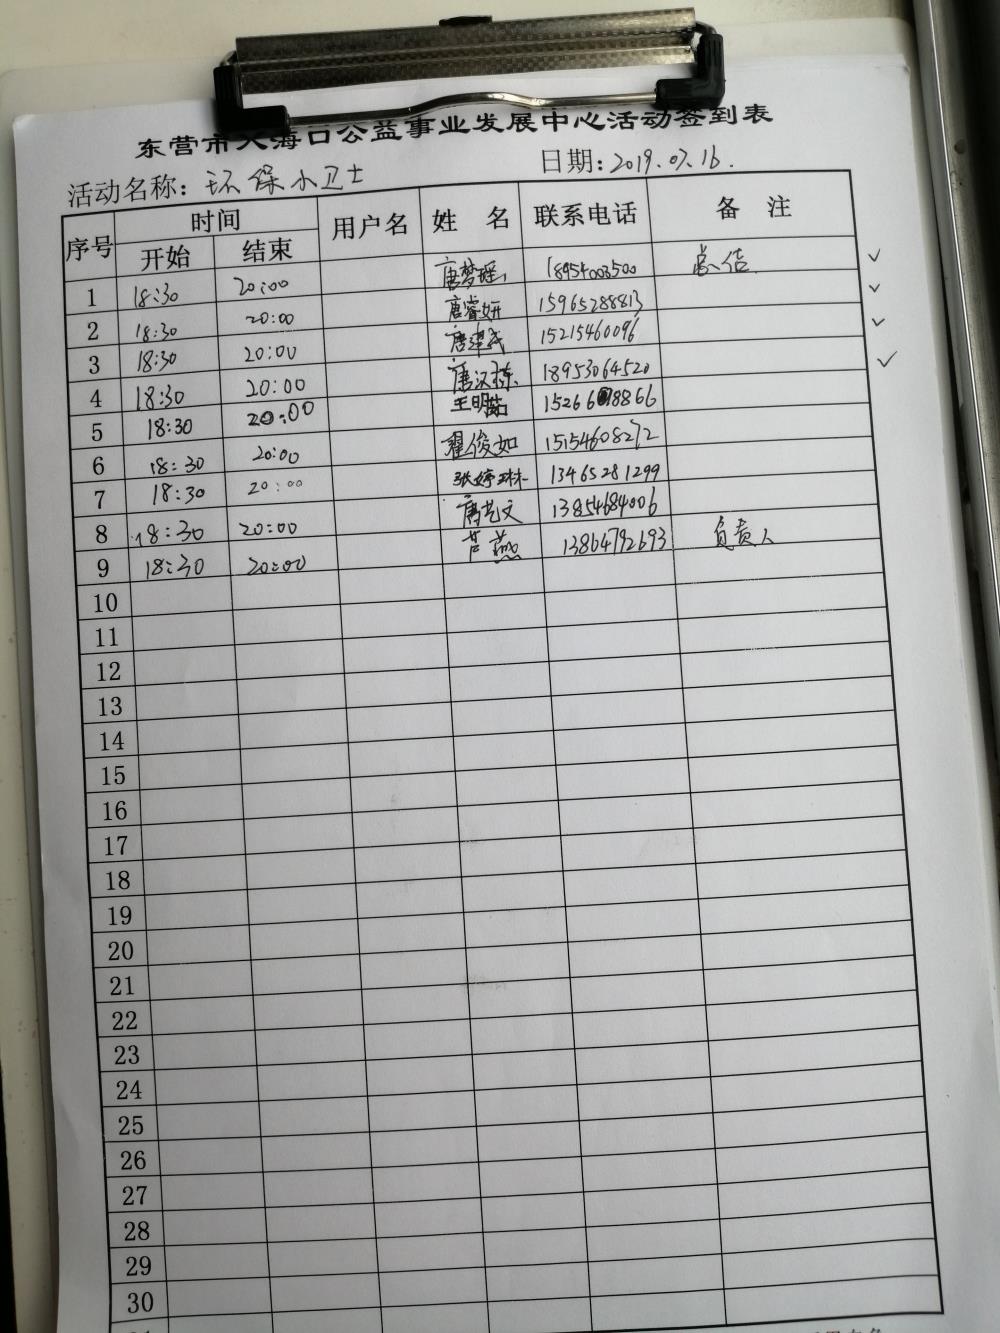 东营市大海口公益事业发展中心活动签到表
活动名称：环保小卫士 日期：2019.07.16.
序号 时间 用户名 姓 名 联系电话 备 注
开始 结束
1 18:30 20:00 唐梦瑶 18954003500
2 18:30 20:00 唐睿妍 15965288813
3 18:30 20:00 唐 15215460096
4 18:30 20:00 唐汉栋 18953064520
5 18:30 20:00 王明茹 15266 8866
6 18:30 20:00 翟俊如 15154608272
7 18:30 20:00 张婷琳 13465281299
8 18:30 20:00 唐艺文 13854684006
9 18:30 20:00 芦燕 13864792693 负责人
10
11
12
13
14
15
16
17
18
19
20
21
22
23
24
25
26
27
28
29
30